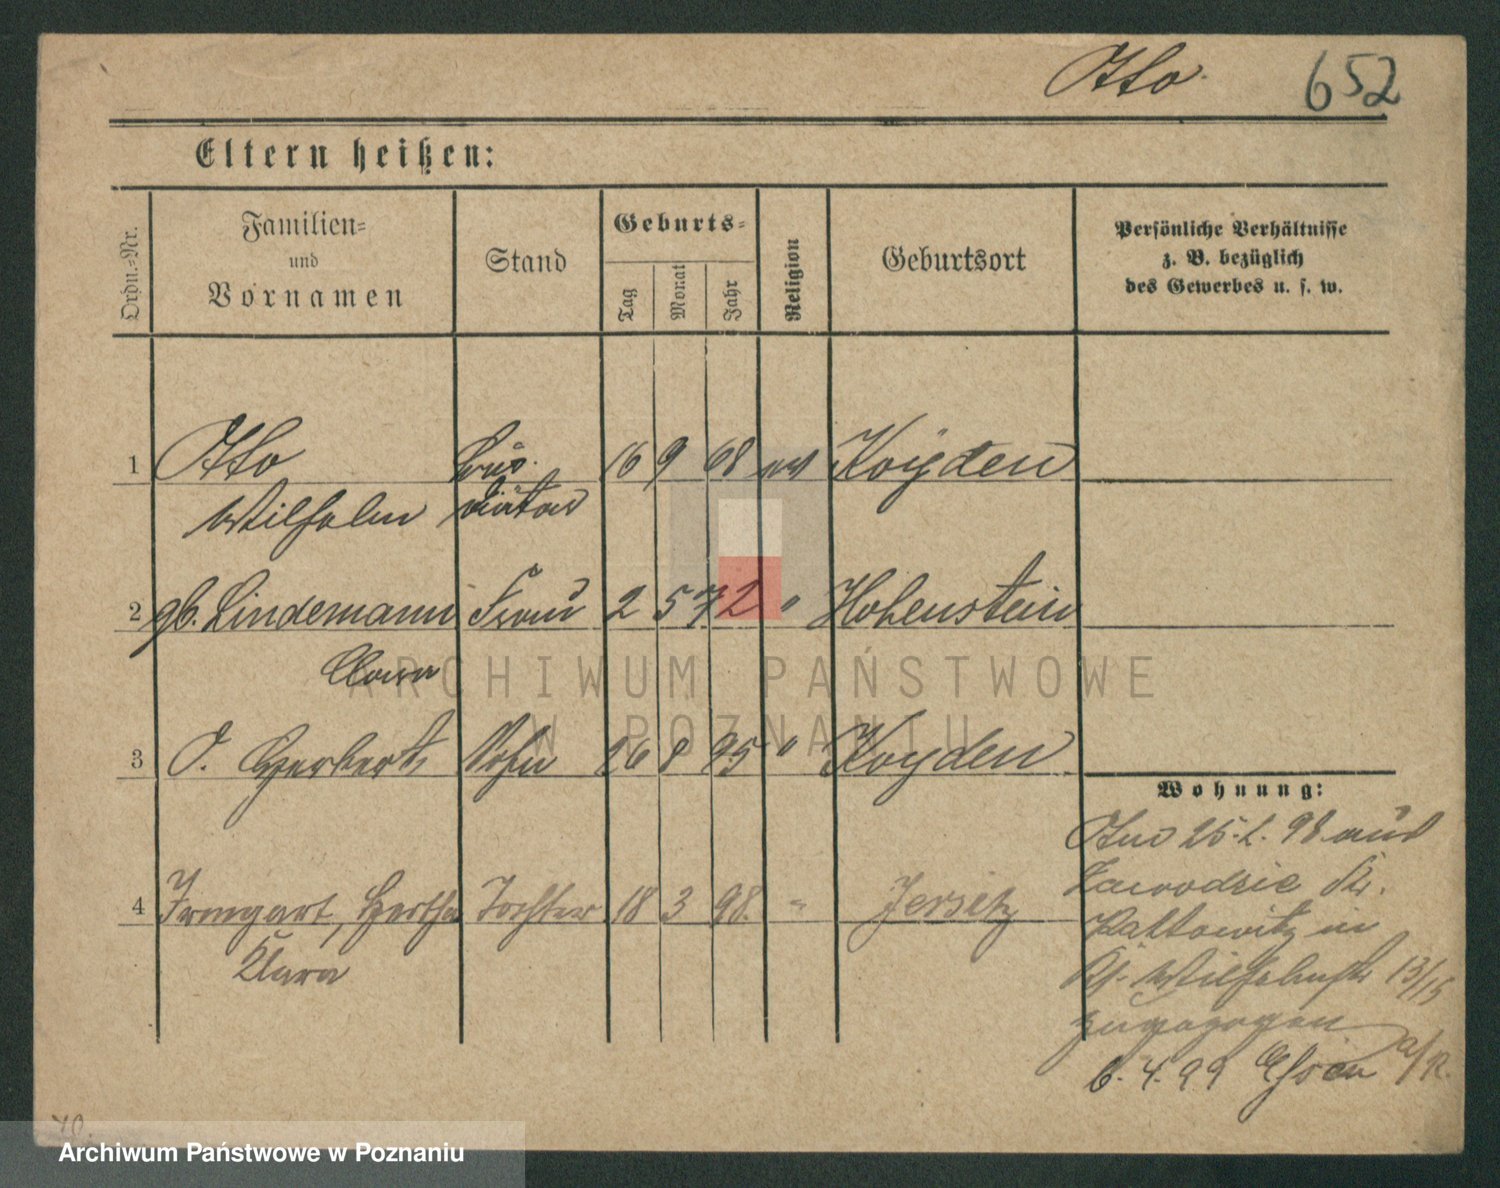 Otto 652
Eltern heißen:
Ordn.-Nr.
Familien-
und
Vornamen
Stand
Geburts-
Tag
Monat
Jahr
Religion
Geburtsort
Persönliche Verhältnisse
z. B. bezüglich
des Gewerbes u. s. w.
1 Otto 16 9 68 ev
Wilhelm diätar
2 gb. Lindemann Frau 2 5 72 " Hohenstein
Clara
3 O. Herbert Sohn 26 8 95 "
Wohnung:
25. 2. 98 aus
Zawodzie Kr.
4 Irmgart, Hertha Tochter 18 3 98. " Jersitz
Kattowitz in
Clara
Wilhelmstr 13/15
zugezogen
6. 4. 99
ARCHIWUM PAŃSTWOWE
W POZNANIU
Archiwum Państwowe w Poznaniu